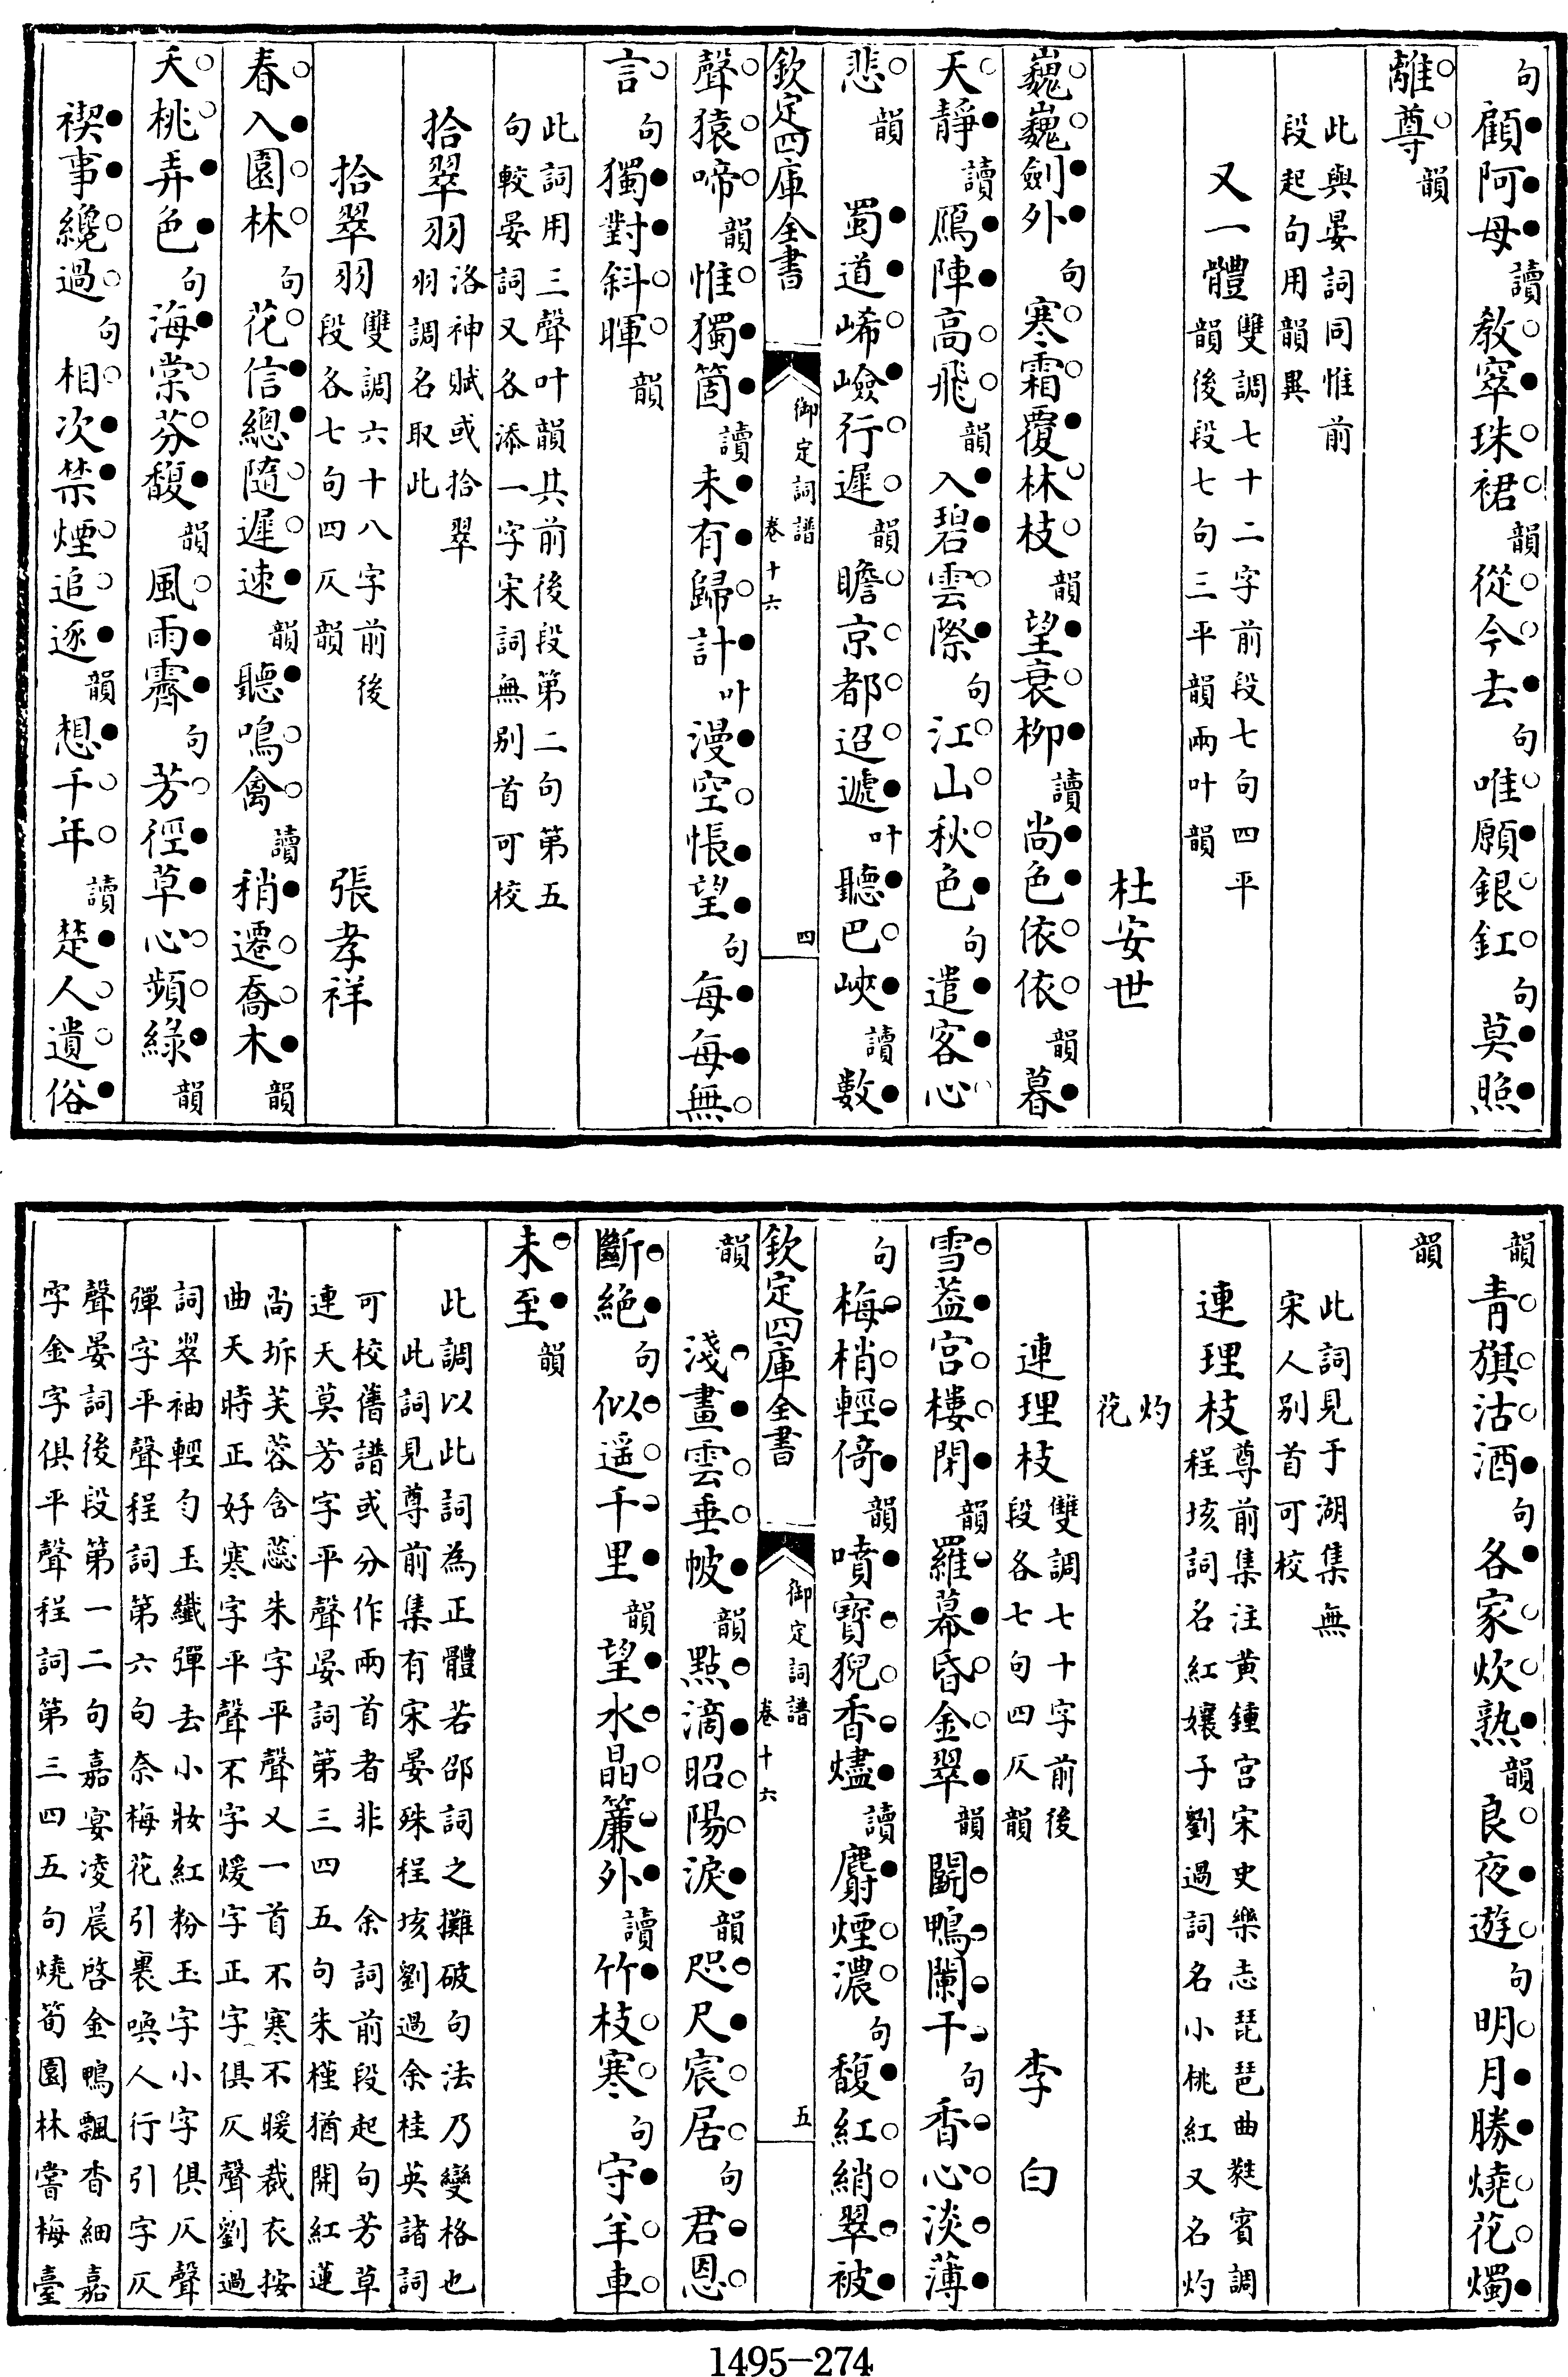 句顧阿母讀教窣珠裙韻從今去句唯願銀釭句莫照
離尊韻
此與晏詞同惟前
段起句用韻異
又一體雙調七十二字前段七句四平
韻後段七句三平韻兩叶韻
杜安世
巍巍劍外句寒霜覆林枝韻望衰柳讀尚色依依韻暮
天靜讀鴈陣高飛韻入碧雲際句江山秋色句遣客心
悲韻蜀道崄巇行遲韻瞻京都迢遞叶聽巴峽讀數
欽定四庫全書
御定詞譜
卷十六
四
聲猿啼韻惟獨箇讀未有歸計叶漫空悵望句每每無
言句獨對斜暉韻
此詞用三聲叶韻其前後段第二句第五
句較晏詞又各添一字宋詞無別首可校
拾翠羽洛神賦或拾翠
羽調名取此
拾翠羽雙調六十八字前後
段各七句四仄韻
張孝祥
春入園林句花信總隨遲速韻聽鳴禽讀稍遷喬木韻
夭桃弄色句海棠芬馥韻風雨霽句芳徑草心頻綠韻
禊事纔過句相次禁煙追逐韻想千年讀楚人遺俗
韻青旗沽酒句各家炊熟韻良夜遊句明月勝燒花燭
韻
此詞見于湖集無
宋人別首可校
連理枝尊前集注黄鍾宫宋史樂志琵琶曲蕤賓調
程垓詞名紅孃子劉過詞名小桃紅又名灼
灼
花
連理枝雙調七十字前後
段各七句四仄韻
李白
雪蓋宮樓閉韻羅幕昏金翠韻鬭鴨闌干句香心淡薄
句梅梢輕倚韻噴寶猊香燼讀麝煙濃句馥紅綃翠被
欽定四庫全書
御定詞譜
卷十六
五
韻淺畫雲垂帔韻點滴昭陽淚韻咫尺宸居句君恩
斷絶句似遥千里韻望水晶簾外讀竹枝寒句守羊車
未至韻
此調以此詞為正體若邵詞之攤破句法乃變格也
此詞見尊前集有宋晏殊程垓劉過余桂英諸詞
可校舊譜或分作兩首者非 余詞前段起句芳草
連天莫芳字平聲晏詞第三四五句朱槿猶開紅蓮
尚坼芙蓉含蕊朱字平聲又一首不寒不暖裁衣按
曲天時正好寒字平聲不字煖字正字俱仄聲劉過
詞翠袖輕勻玉纖彈去小妝紅粉玉字小字俱仄聲
彈字平聲程詞第六句奈梅花引裏喚人行引字仄
聲晏詞後段第一二句嘉宴凌晨啓金鴨飄香細嘉
字金字俱平聲程詞第三四五句燒筍園林嘗梅臺
1495-274